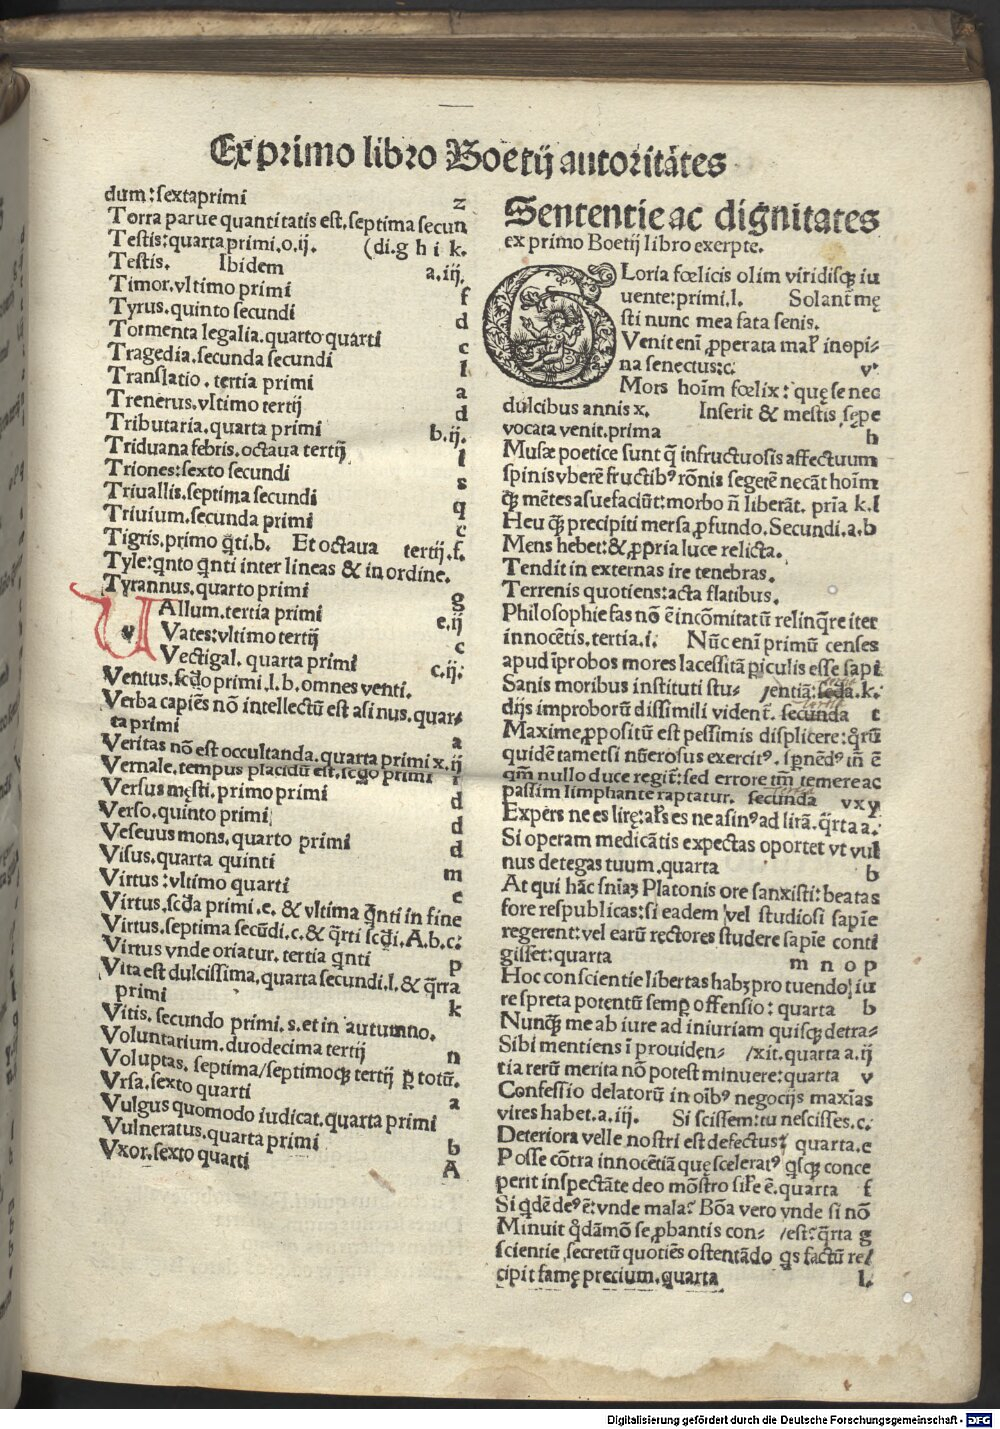 Ex primo libro Boetij autoritates
dum: sexta primi z
Torra parue quantitatis est. septima secun
Testis: quarta primi. o. ij. (di. g h i k.
Testis. Ibidem a. iij.
Timor. vltimo primi f
Tyrus. quinto secundi d
Tormenta legalia. quarto quarti c
Tragedia. secunda secundi l
Translatio. tertia primi a
Trenerus. vltimo tertij d
Tributaria. quarta primi b. ij.
Triduana febris. octaua tertij l
Triones: sexto secundi s
Triuallis. septima secundi q
Triuium. secunda primi c
Tigris. primo q̄ti. b. Et octaua tertij. f.
Tyle: qnto qnti inter lineas & in ordine.
Tyrannus. quarto primi g
VAllum. tertia primi e. ij
v Vates: vltimo tertij c
Vectigal. quarta primi c. ij.
Ventus. scdo primi. l. b. omnes venti.
Verba capiēs nō intellectū est asinus. quar⸗
ta primi a
Veritas nō est occultanda. quarta primi x. ij
Vernale. tempus placidū est. scdo primi r
Versus męsti. primo primi d
Verso. quinto primi d
Veseuus mons. quarto primi d
Visus. quarta quinti m
Virtus: vltimo quarti e
Virtus. scda primi. e. & vltima qnti in fine
Virtus. septima secūdi. c. & q̄rti scdi. A. b. c.
Virtus vnde oriatur. tertia qnti p
Vita est dulcissima. quarta secundi. l. & q̄rra
primi k
Vitis. secundo primi. s. et in autumno.
Voluntarium. duodecima tertij n
Voluptas. septima/septimoqꝫ tertij ꝑ totū.
Vrsa. sexto quarti a
Vulgus quomodo iudicat. quarta primi
Vulneratus. quarta primi b
Vxor. sexto quarti A
Sententie ac dignitates
ex primo Boetij libro exerpte.
GLoria fœlicis olim viridisqꝫ iu
uente: primi. l. Solant̄ mę
sti nunc mea fata senis.
Venit eni ꝓperata mal inopi⸗
na senectus: c. v
Mors hoīm fœlix: quę se nec
dulcibus annis x. Inserit & mestis sępe
vocata venit. prima h
Musæ poetice sunt q̄ infructuosis affectuum
spinis vberē fructibꝰ rōnis segetē necāt hoīm
qꝫ mētes asuefaciūt: morbo n̄ liberāt. prīa k. l
Heu qꝫ precipiti mersa ꝓfundo. Secundi. a. b
Mens hebet: & ꝓpria luce relicta.
Tendit in externas ire tenebras.
Terrenis quotiens: acta flatibus.
Philosophie fas nō ē incōmitatū relinq̄re iter
innocētis. tertia. i. Nūc eni primū censes
apud īprobos mores lacessitā ꝑiculis esse sapi
Sanis moribus instituti stu⸗ /entiā: seda. k.
dijs improborū dissimili vident̄. secunda t
Maxime ꝓpositū est pessimis displicere: q̄rū
quidē tametsi nūerosus exercitꝰ. spnēdꝰ tn̄ ē
qm̄ nullo duce regit̄: sed errore tm̄ temere ac
passim limphante raptatur. secunda v x y
Expers ne es lirę: ars es ne asinꝰ ad lirā. q̄rta a.
Si operam medicātis expectas oportet vt vul
nus detegas tuum. quarta b
At qui hāc sn̄iaꝫ Platonis ore sanxisti: beatas
fore respublicas: si eadem vel studiosi sapīe
regerent: vel earū rectores studere sapīe conti
gisset: quarta m n o p
Hoc conscientie libertas habꝫ pro tuendo iu
re spreta potentū semp offensio: quarta b
Nunqꝫ me ab iure ad iniuriam quisqꝫ detra⸗
Sibi mentiens ī prouiden⸗ /xit. quarta a. ij
tia rerū merita nō potest minuere: quarta v
Confessio delatorū in oībꝰ negocijs maxīas
vires habet. a. iij. Si scissem: tu nescisses. c.
Deteriora velle nostri est defectus: quarta. e
Posse cōtra innocētiā quę sceleratꝰ qsqꝫ conce
perit inspectāte deo mōstro sile ē. quarta f
Si qdē deꝰ ē: vnde mala? Bōa vero vnde si nō
Minuit qdāmō se ꝓbantis con⸗ /est? q̄rta g
scientie secretū quotiēs ostentādo qs factū re
cipit famę precium. quarta l.
Digitalisierung gefördert durch die Deutsche Forschungsgemeinschaft - DFG